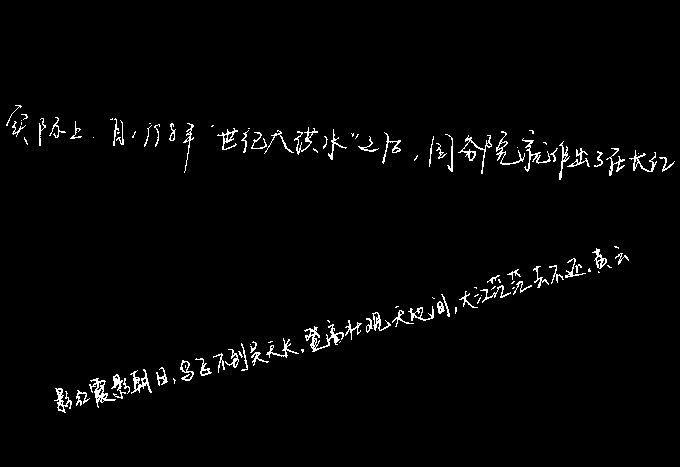 实际上，自1998年“世纪大洪水”之后，国务院就作出了在长江
影红霞影朝日，鸟飞不到吴天长，登高壮观天地间，大江茫茫去不还，黄云